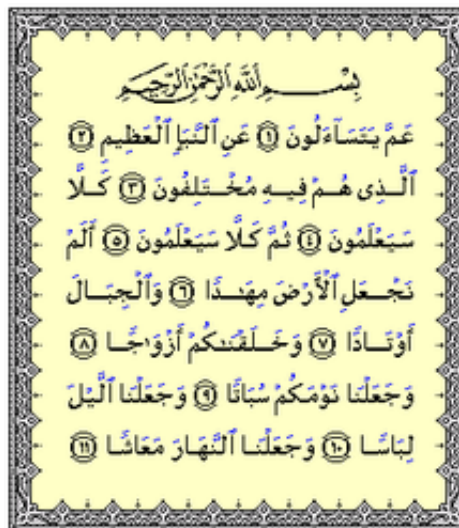 بِسْمِ ٱللَّهِ ٱلرَّحْمَٰنِ ٱلرَّحِيمِ
عَمَّ يَتَسَآءَلُونَ ١ عَنِ ٱلنَّبَإِ ٱلْعَظِيمِ ٢
ٱلَّذِى هُمْ فِيهِ مُخْتَلِفُونَ ٣ كَلَّا
سَيَعْلَمُونَ ٤ ثُمَّ كَلَّا سَيَعْلَمُونَ ٥ أَلَمْ
نَجْعَلِ ٱلْأَرْضَ مِهَٰدًا ٦ وَٱلْجِبَالَ
أَوْتَادًا ٧ وَخَلَقْنَٰكُمْ أَزْوَٰجًا ٨
وَجَعَلْنَا نَوْمَكُمْ سُبَاتًا ٩ وَجَعَلْنَا ٱلَّيْلَ
لِبَاسًا ١٠ وَجَعَلْنَا ٱلنَّهَارَ مَعَاشًا ١١